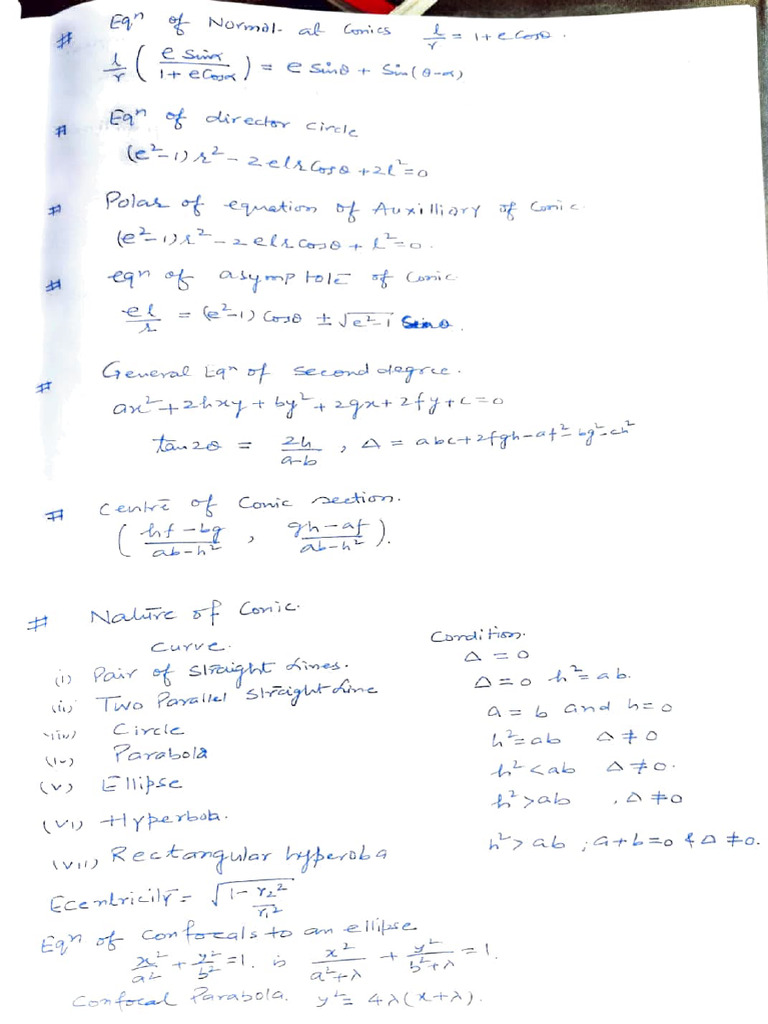 # Eqn of Normal at Conics l/r = 1+e Cosθ.
l/r ( e Sinα / 1+eCosα ) = e Sinθ + Sin(θ-α)
# Eqn of director circle
(e²-1)r² - 2elrCosθ + 2l²=0
# Polar of equation of Auxilliary of Conic
(e²-1)r² - 2elrCosθ + l²=0.
# eqn of asymptote of Conic
el/r = (e²-1) Cosθ ± √e²-1 Sinθ.
# General Eqn of second degree.
ax²+2hxy+by²+2gx+2fy+c=0
tan2θ = 2h/a-b , Δ = abc+2fgh-af²-bg²-ch²
# Centre of Conic section.
( hf-bg/ab-h² , gh-af/ab-h² ).
# Nature of Conic.
Curve. Condition.
(i) Pair of Straight Lines. Δ = 0
(ii) Two Parallel Straight Line Δ=0 h²=ab.
(iii) Circle a = b and h=0
(iv) Parabola h²=ab Δ≠0
(v) Ellipse h²<ab Δ≠0.
(vi) Hyperbola. h²>ab , Δ≠0
(vii) Rectangular hyperoba h²>ab ; a+b=0 & Δ≠0.
Ecentricity = √1- r₂²/r₁²
Eqn of confocals to an ellipse
x²/a² + y²/b² =1. is x²/a²+λ + y²/b²+λ =1.
Confocal Parabola. y²= 4λ(x+λ).